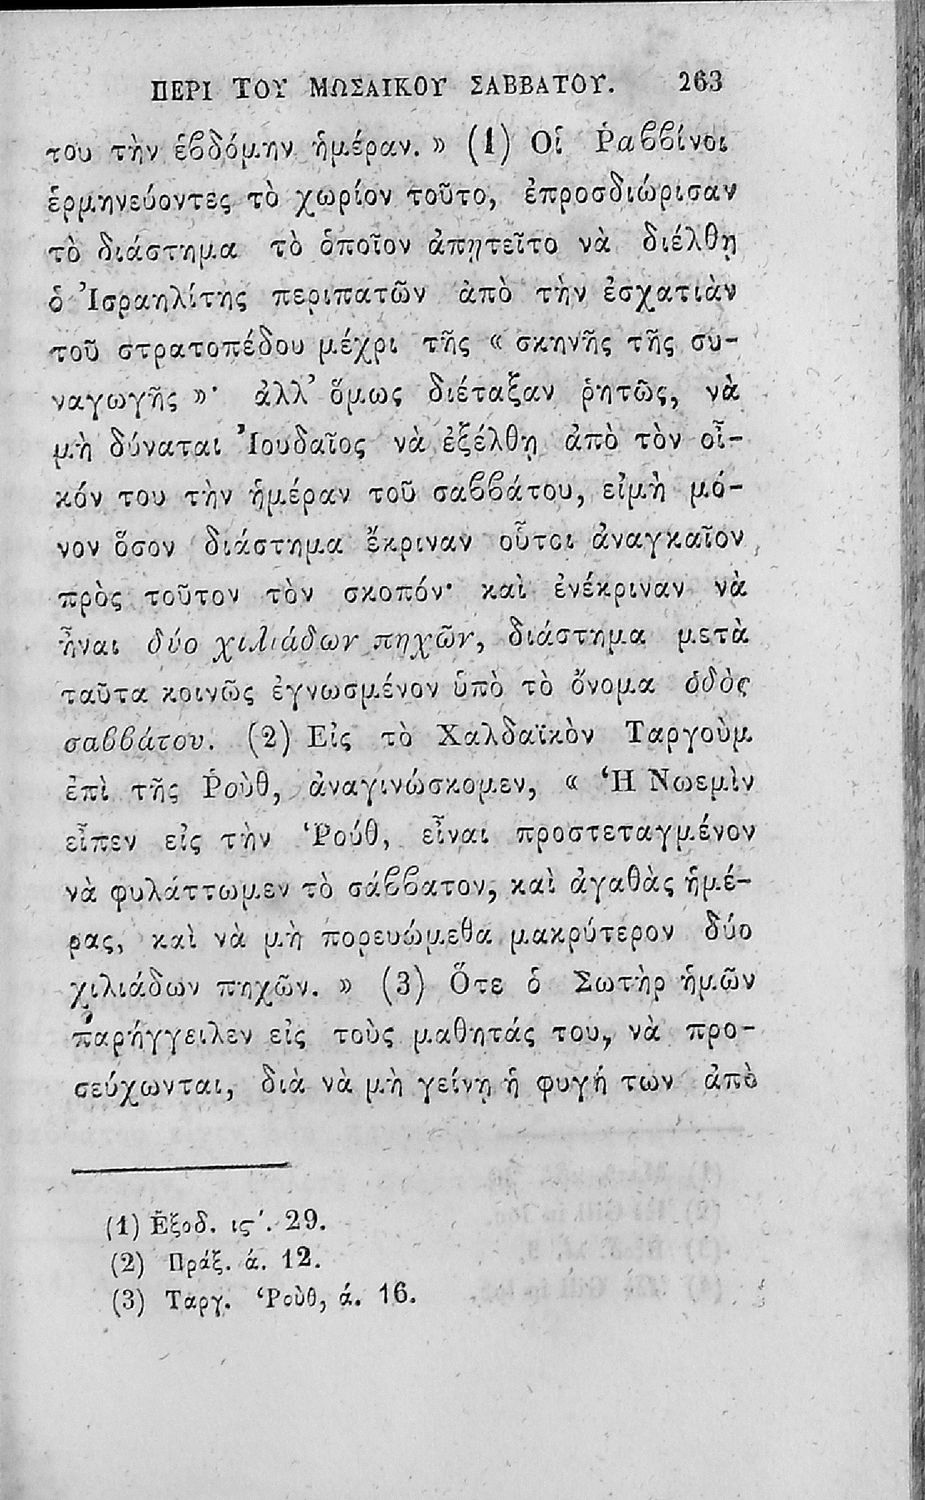 ΠΕΡΙ ΤΟΥ ΜΩΣΑΙΚΟΥ ΣΑΒΒΑΤΟΥ. 263
του τὴν ἑϐδόμην ἡμέραν. » (1) Οἱ Ῥαϐϐίνοι
ἑρμηνεύοντες τὸ χωρίον τοῦτο, ἐπροσδιώρισαν
τὸ διάστημα τὸ ὁποῖον ἀπῃτεῖτο νὰ διέλθῃ
ὁ Ἰσραηλίτης περιπατῶν ἀπὸ τὴν ἐσχατιὰν
τοῦ στρατοπέδου μέχρι τῆς « σκηνῆς τῆς συ-
ναγωγῆς »· ἀλλ’ ὅμως διέταξαν ῥητῶς, νὰ
μὴ δύναται Ἰουδαῖος νὰ ἐξέλθῃ ἀπὸ τὸν οἶ-
κόν του τὴν ἡμέραν τοῦ σαϐϐάτου, εἰμὴ μό-
νον ὅσον διάστημα ἔκριναν οὗτοι ἀναγκαῖον
πρὸς τοῦτον τὸν σκοπόν· καὶ ἐνέκριναν νὰ
ἦναι δύο χιλιάδων πηχῶν, διάστημα μετὰ
ταῦτα κοινῶς ἐγνωσμένον ὑπὸ τὸ ὄνομα ὁδὸς
σαϐϐάτου. (2) Εἰς τὸ Χαλδαϊκὸν Ταργοὺμ
ἐπὶ τῆς Ῥοὺθ, ἀναγινώσκομεν, « Ἡ Νωεμὶν
εἶπεν εἰς τὴν Ῥούθ, εἶναι προστεταγμένον
νὰ φυλάττωμεν τὸ σάϐϐατον, καὶ ἀγαθὰς ἡμέ-
ρας, καὶ νὰ μὴ πορευώμεθα μακρύτερον δύο
χιλιάδων πηχῶν. » (3) Ὅτε ὁ Σωτὴρ ἡμῶν
παρήγγειλεν εἰς τοὺς μαθητάς του, νὰ προ-
σεύχωνται, διὰ νὰ μὴ γείνῃ ἡ φυγή των ἀπὸ
(1) Ἐξοδ. ιϛ΄. 29.
(2) Πράξ. ά. 12.
(3) Ταργ. Ῥοὺθ, ά. 16.